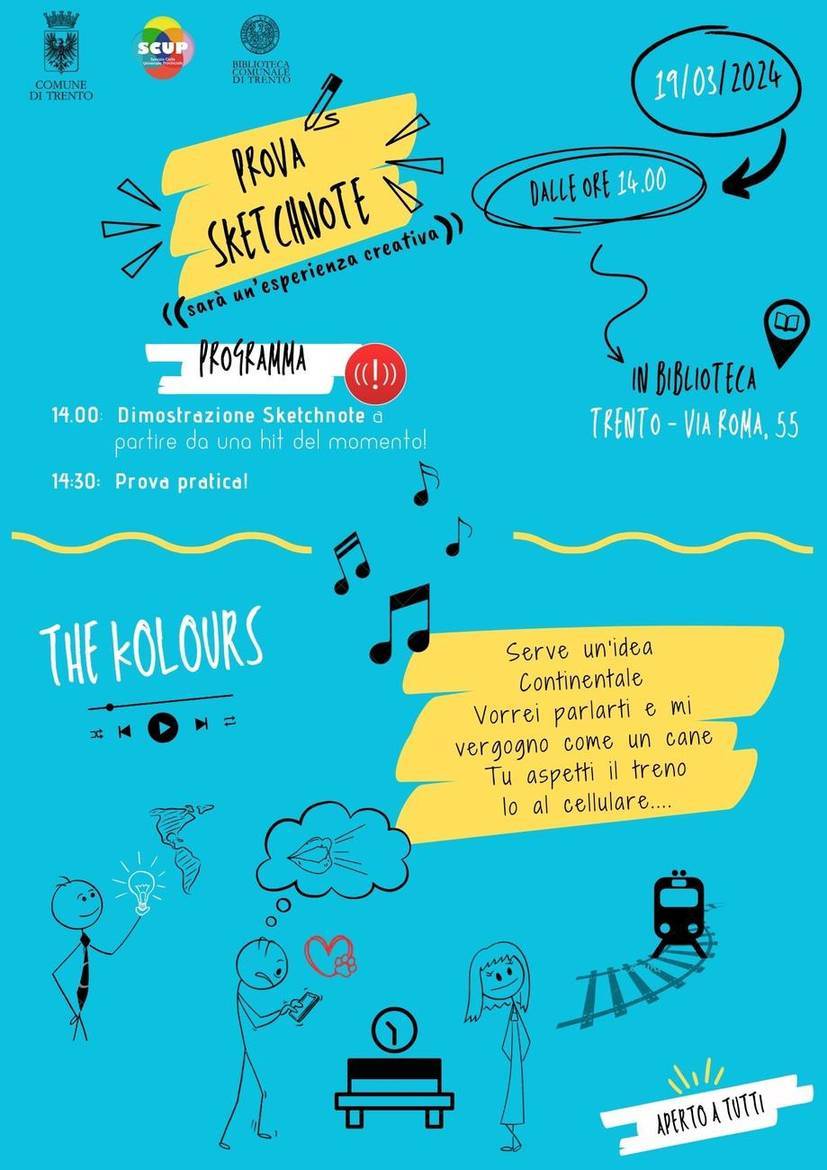 COMUNE
DI TRENTO
SCUP
BIBLIOTECA
COMUNALE
DI TRENTO
19/03/2024
PROVA
SKETCHNOTE
((sarà un'esperienza creativa))
DALLE ORE 14.00
IN BIBLIOTECA
TRENTO - VIA ROMA, 55
PROGRAMMA
((!))
14.00: Dimostrazione Sketchnote a
partire da una hit del momento!
14:30: Prova pratica!
THE KOLOURS
Serve un'idea
Continentale
Vorrei parlarti e mi
vergogno come un cane
Tu aspetti il treno
Io al cellulare....
APERTO A TUTTI